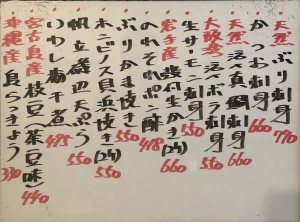 天然 ぶり刺身 770
かつお刺身 660
天然 活真鯛刺身 660
大阪産 活〆ボラ刺身 550
生サーモン刺身 550
岩手産 殻付生かき(2ヶ) 660
のれそれポン酢 418
ぶりかま焼き 550
ホンビノス貝浜焼き(2ヶ) 550
帆立磯辺天ぷら 550
いわし梅干煮 495
宮古島産 枝豆(茶豆味) 440
沖縄産 島らっきょう 330